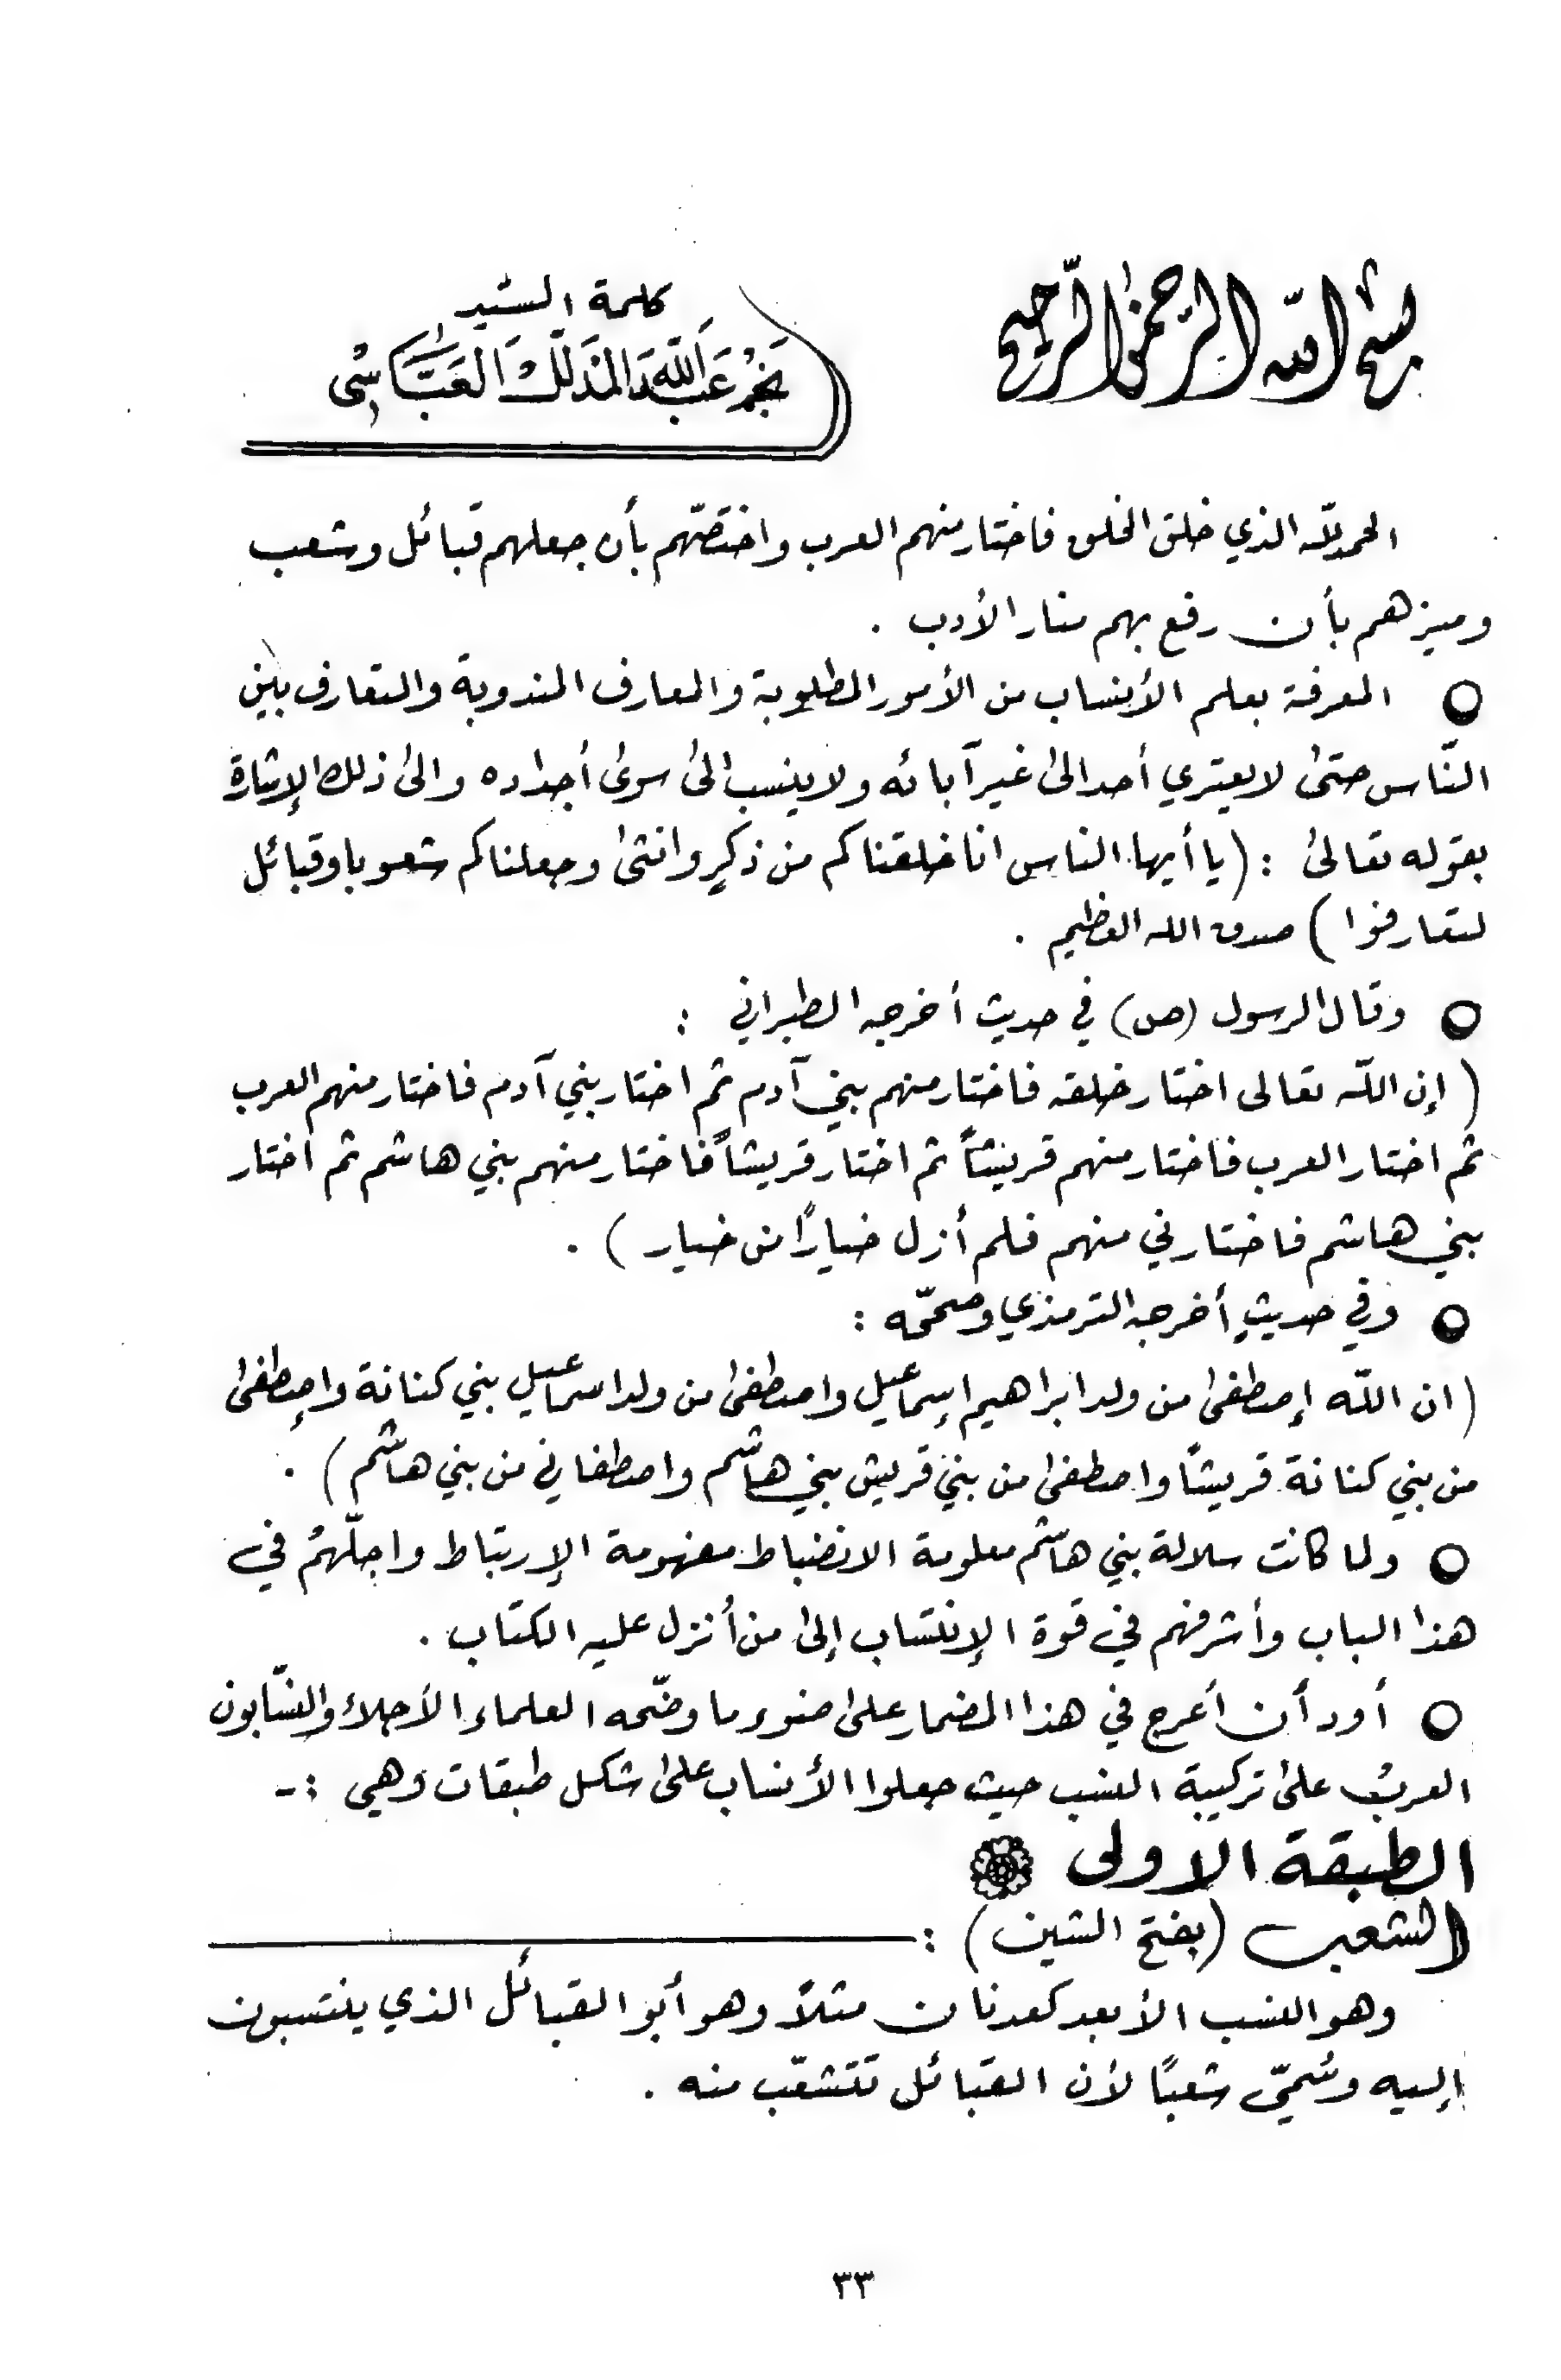 بسم الله الرحمن الرحيم
كلمة السيد
نجم عبد الله المندلك العباسي
الحمد لله الذي خلق الخلق فاختار منهم العرب واختصّهم بأن جعلهم قبائل وشعب
وميزهم بأن رفع بهم منار الأدب .
المعرفة بعلم الأنساب من الأمور المطلوبة والمعارف المندوبة والتعارف بين
النّاس حتىٰ لا يعتري أحد الىٰ غير آبائه ولا ينسب الىٰ سوىٰ أجداده والىٰ ذلك الإشارة
بقوله تعالىٰ : (يا أيها الناس انا خلقناكم من ذكرٍ وانثىٰ وجعلناكم شعوبا وقبائل
لتعارفوا) صدق الله العظيم .
وقال الرسول (ص) في حديث أخرجه الطبراني :
( إن اللّه تعالى اختار خلقه فاختار منهم بني آدم ثم اختار بني آدم فاختار منهم العرب
ثم اختار العرب فاختار منهم قريشاً ثم اختار قريشاً فاختار منهم بني هاشم ثم اختار
بني هاشم فاختارني منهم فلم أزل خياراً من خيار ) .
وفي حديثٍ أخرجه الترمذي وصحّحه :
(ان اللّه إصطفىٰ من ولد ابراهيم إسماعيل واصطفىٰ من ولد اسماعيل بني كنانة وإصطفىٰ
من بني كنانة قريشاً واصطفىٰ من بني قريش بني هاشم واصطفاني من بني هاشم ) .
ولما كانت سلالة بني هاشم معلومة الانضباط مفهومة الإرتباط واجلّهم في
هذا الباب وأشرفهم في قوة الإنتساب إلىٰ من أنزل عليه الكتاب .
أود أن أعرج في هذا المضمار علىٰ ضوء ما وضّحه العلماء الأجلاء والنسّابون
العرب علىٰ تركيبة النسب حيث جعلوا الأنساب علىٰ شكل طبقات وهي :-
الطبقة الاولى
الشعب (بفتح الشين) :
وهو النسب الأبعد كعدنان مثلاً وهو أبو القبائل الذي ينتسبون
إليه وسُميّ شعباً لأن القبائل تتشعّب منه .
٣٣